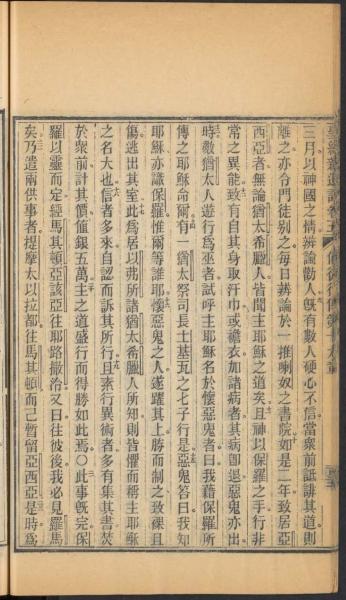 使徒行傳第十九章
三月以神國之情辨論勸人旣有數人硬心不信當衆前詆誹其道則
離之亦令門徒別之每日辨論於一推喇奴之書院如是二年致居亞
西亞者無論猶太希臘人皆聞主耶穌之道矣且神以保羅之手行非
常之異能致有自其身取汗巾或襜衣加諸病者其病卽退惡鬼亦出
時數猶太人遊行爲巫者試呼主耶穌名於懷惡鬼者曰我藉保羅所
傳之耶穌命爾有一猶太祭司長士基瓦之七子行是惡鬼答曰我知
耶穌亦識保羅惟爾等誰耶懷惡鬼之人遂躍其上勝而制之致裸且
傷逃出其室此爲居以弗所諸猶太希臘人所知則皆懼而稱主耶穌
之名大也信者多來自認而訴其所行且素行異術者多有集其書焚
於衆前計其價値銀五萬主之道盛行而得勝如此焉○此事旣完保
羅以靈而定經馬其頓亞該亞往耶路撒冷又曰往彼後我必見羅馬
矣乃遣兩供事者提摩太以拉都往馬其頓而己暫留亞西亞是時爲